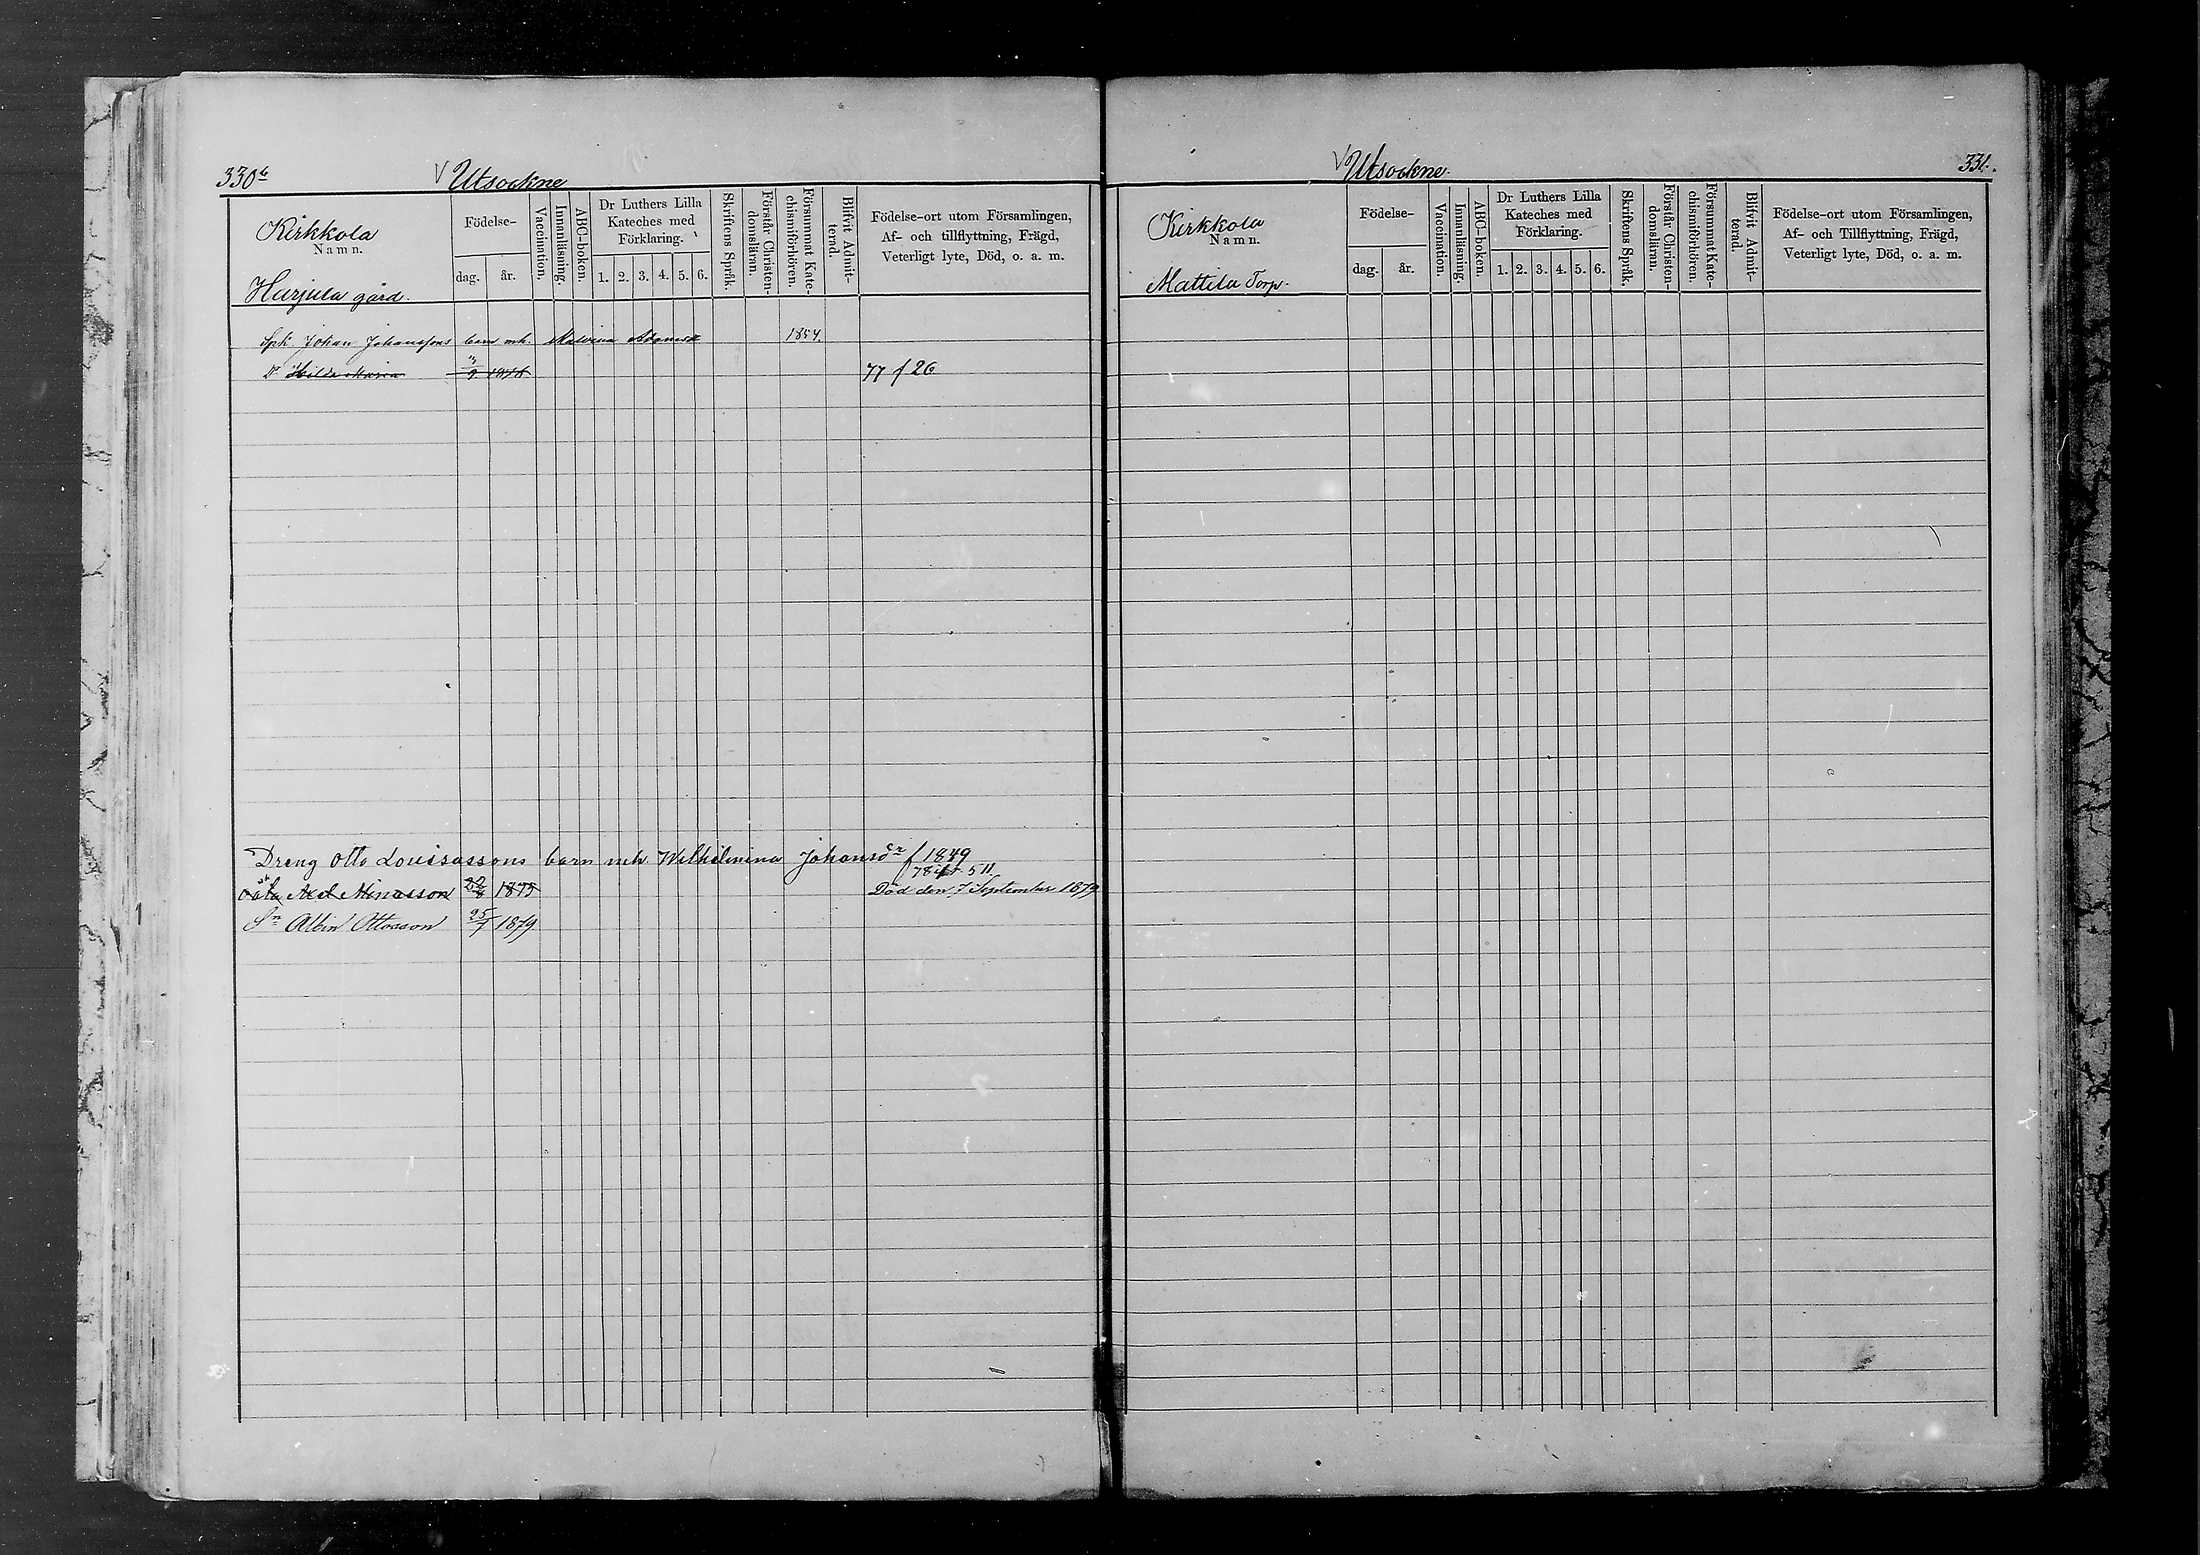 330b
V Utsockne
Kirkkola
Namn.
Harjula gård.
Födelse-
dag.
år.
Vaccination.
Innanläsning.
ABC-boken.
Dr Luthers Lilla
Kateches med
Förklaring.
1. 2. 3. 4. 5. 6.
Skriftens Språk.
Förstår Christen-
domsläran.
Försummat Kate-
chismiförhören.
Blifvit Admit-
terad.
Födelse-ort utom Församlingen,
Af- och tillflyttning, Frägd,
Veterligt lyte, Död, o. a. m.
Johan Johanssons barn mh. 1854.
Hilda Maria 77 f 26
Dreng Otto Louisassons barn mh Wilhelmina Johansdr f 1849
Axel Minasson 1875 Död den 7 September 1879
Sn Albin Ottosson 25/7 1879
V Utsockne.
331.
Kirkkola
Namn.
Mattila Torp.
Födelse-
dag.
år.
Vaccination.
Innanläsning.
ABC-boken.
Dr Luthers Lilla
Kateches med
Förklaring.
1. 2. 3. 4. 5. 6.
Skriftens Språk.
Förstår Christen-
domsläran.
Försummat Kate-
chismiförhören.
Blifvit Admit-
terad.
Födelse-ort utom Församlingen,
Af- och Tillflyttning, Frägd,
Veterligt lyte, Död, o. a. m.